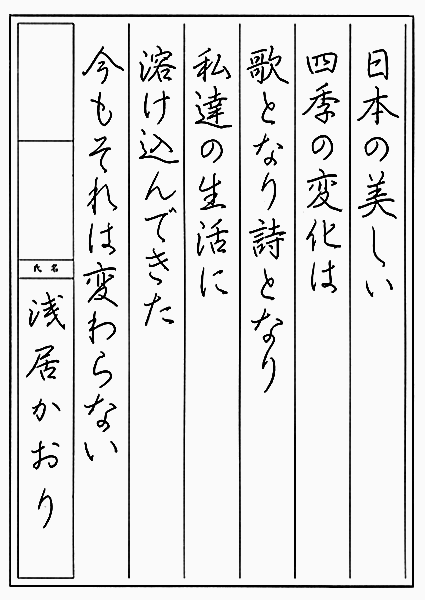 日本の美しい
四季の変化は
歌となり詩となり
私達の生活に
溶け込んできた
今もそれは変わらない
氏名
浅居かおり